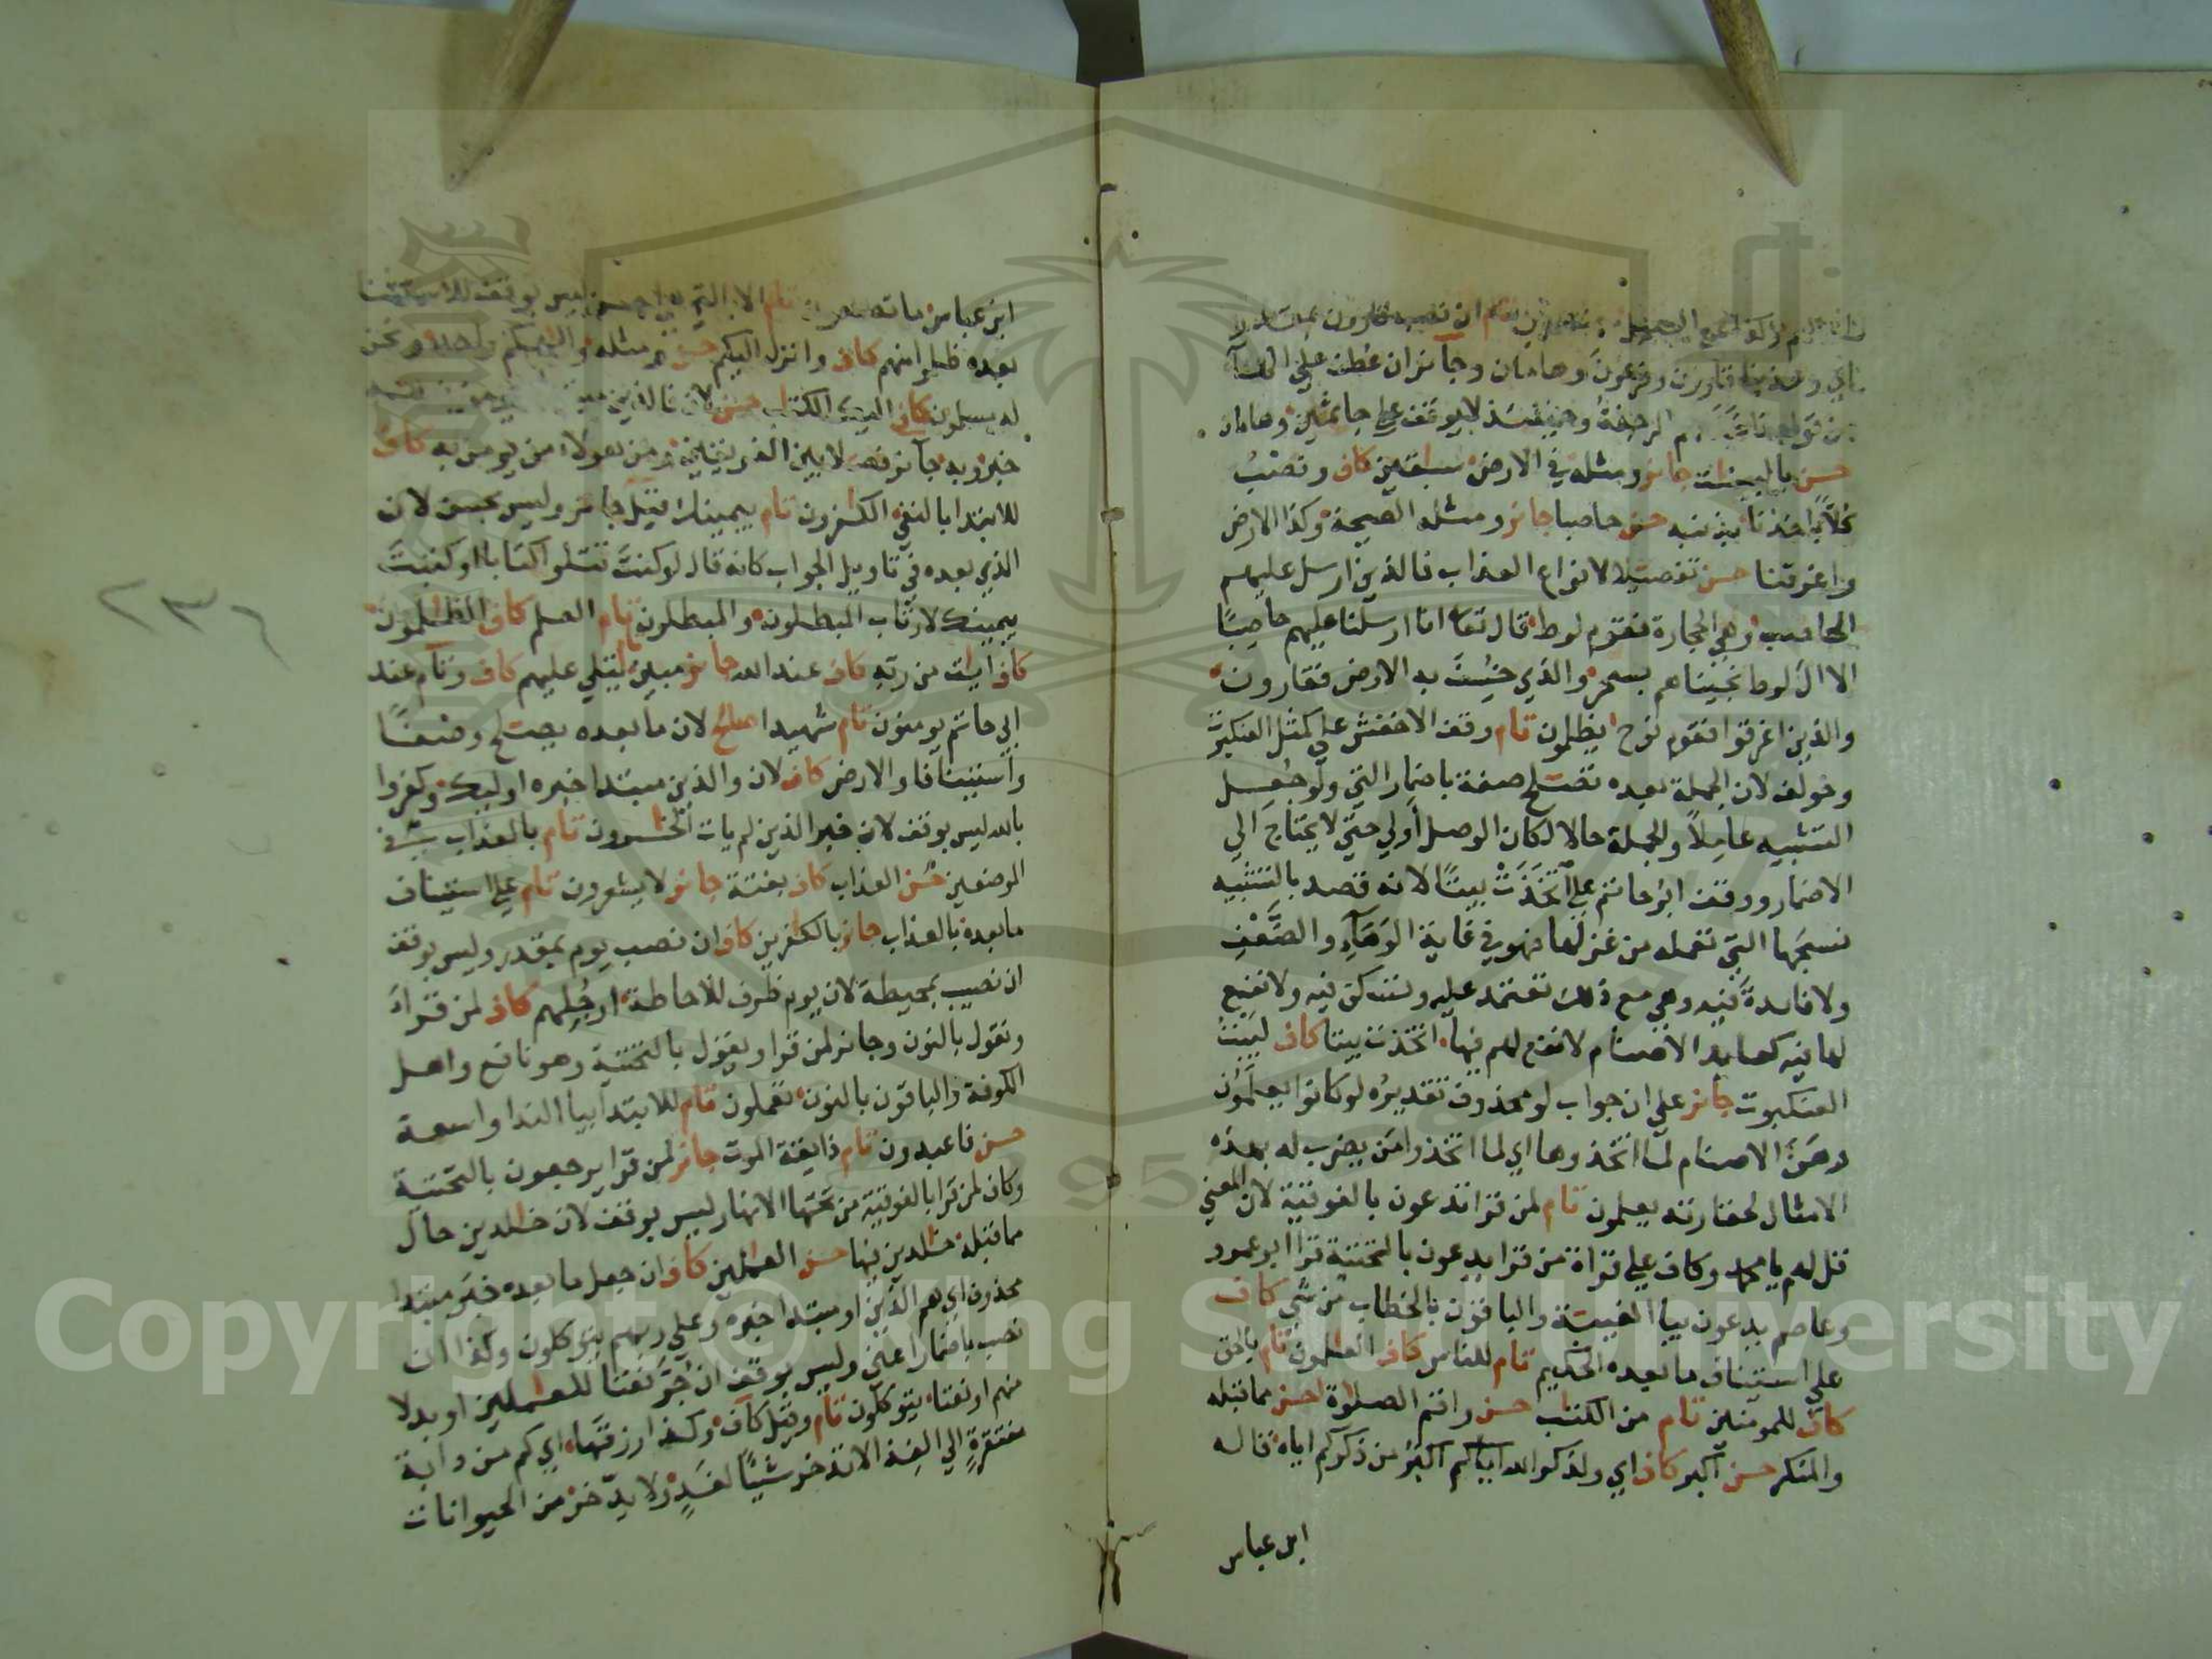 ان نصب قارون بمقدر
اي وعذبنا قارون وفرعون وهامان وجائز ان عطف علي الهاء
من قوله فاخذتهم الرجفة وحينئذ لا يوقف علي جاثمين وهامان
حسن بالبينت جائز ومثله في الارض سبقين كاف ونصب
كلا باخذنا بذنبه حسن حاصبا جائز ومثله الصيحة وكذا الارض
واغرقنا حسن تفصيلا لانواع العذاب فالذين ارسل عليهم
الحاصب وهي الحجارة فقوم لوط قال تعا انا ارسلنا عليهم حاصبا
الا ال لوط نجيناهم بسحر والذي خسفت به الارض فقارون
والذين اغرقوا فقوم نوح يظلمون تام وقف الاخفش علي كمثل العنكبوت
وخولف لان الجملة بعده تصلح صفة باضمار التي ولو جعل
التشبيه عاملا والجملة حالا لكان الوصل أولي حتي لا يحتاج الي
الاضمار ووقف ابو حاتم علي اتخذت بيتا لانه قصد بالتشبيه
نسجها التي تعمله من غزلها فهو في غاية الوهاء والضعف
ولا فائدة فيه وهي مع ذلك تعتمد عليه وتسكن فيه ولا نفع
لها فيه كعابد الاصنام لا نفع لهم فيها اتخذت بيتا كاف لبيت
العنكبوت جائز علي ان جواب لو محذوف تقديره لو كانوا يعلمون
وهن الاصنام لما اتخذوها اي لما اتخذوا من يضرب له بهذه
الامثال لحقارته يعلمون تام لمن قرا تدعون بالفوقية لان المعني
قل لهم يا محمد وكاف علي قراة من قرا يدعون بالتحتية قرا ابو عمرو
وعاصم يدعون بيا الغيبة والباقون بالخطاب من شي كاف
علي استيناف ما بعده الحكيم تام للناس كاف العلمون تام بالحق
كاف للمومنين تام من الكتب حسن واقم الصلوة احسن مما قبله
والمنكر حسن اكبر كاف اي ولذكر الله اياكم اكبر من ذكركم اياه قاله
ابن عباس
ابن عباس ما تصنعون تام الا بالتي هي احسن ليس بوقف للاستثنا
بعده ظلموا منهم كاف وانزل اليكم حسن ومثله والهكم واحد ونحن
له مسلمون كاف اليك الكتب حسن لان فالذين
خبره به جائز فصلا بين الفريقين ومن هولاء من يومن به كاف
للابتدا بالنفي الكفرون تام بيمينك قيل جائز وليس بحسن لان
الذي بعده في تاويل الجواب كانه قال لو كنت تتلوا كتابا او كتبت
بيمينك لارتاب المبطلون والمبطلون تام العلم كاف الظلمون
كاف ايت من ربه كاف عند الله جائز مبين يتلي عليهم كاف وتام عند
ابي حاتم يومنون تام شهيدا صالح لان ما بعده يصلح وصفا
واستينافا والارض كاف لان والذين مبتدا خبره اوليك وكفروا
بالله ليس بوقف لان خبر الذين لم يات الخسرون تام بالعذاب في
الموضعين حسن العذاب كاف بغتة جائز لا يشعرون تام علي استيناف
ما بعده بالعذاب جائز بالكفرين كاف ان نصب يوم بمقدر وليس بوقف
ان نصب بمحيطة لان يوم ظرف للاحاطة ارجلهم كاف لمن قراء
ونقول بالنون وجائز لمن قرا ويقول بالتحتية وهو نافع واهل
الكوفة والباقون بالنون تعملون تام للابتدا بيا الندا واسعة
حسن فاعبدون تام ذايقة الموت جائز لمن قرا يرجعون بالتحتية
وكاف لمن قرا بالفوقية من تحتها الانهار ليس بوقف لان خلدين حال
مما قبله خلدين فيها حسن العملين كاف ان جعل ما بعده خبر مبتدا
محذوف اي هم الذين او مبتدا خبره وعلي ربهم يتوكلون وكذا ان
نصب باضمار اعني وليس بوقف ان جر نعتا للعملين او بدلا
منهم او نعتا يتوكلون تام وقيل كاف وكذا رزقها اي كم من دابة
مفتقرة الي الغذا لا تدخر شيئا لغد ولا يدخر من الحيوانات
٢٣٦
Copyright © King Saud University